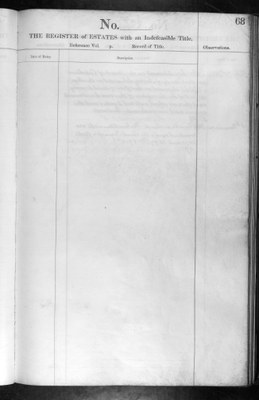 68
No.
THE REGISTER of ESTATES with an Indefeasible Title.
Reference: Vol. p. Record of Title. Observations.
Date of Entry. Description.